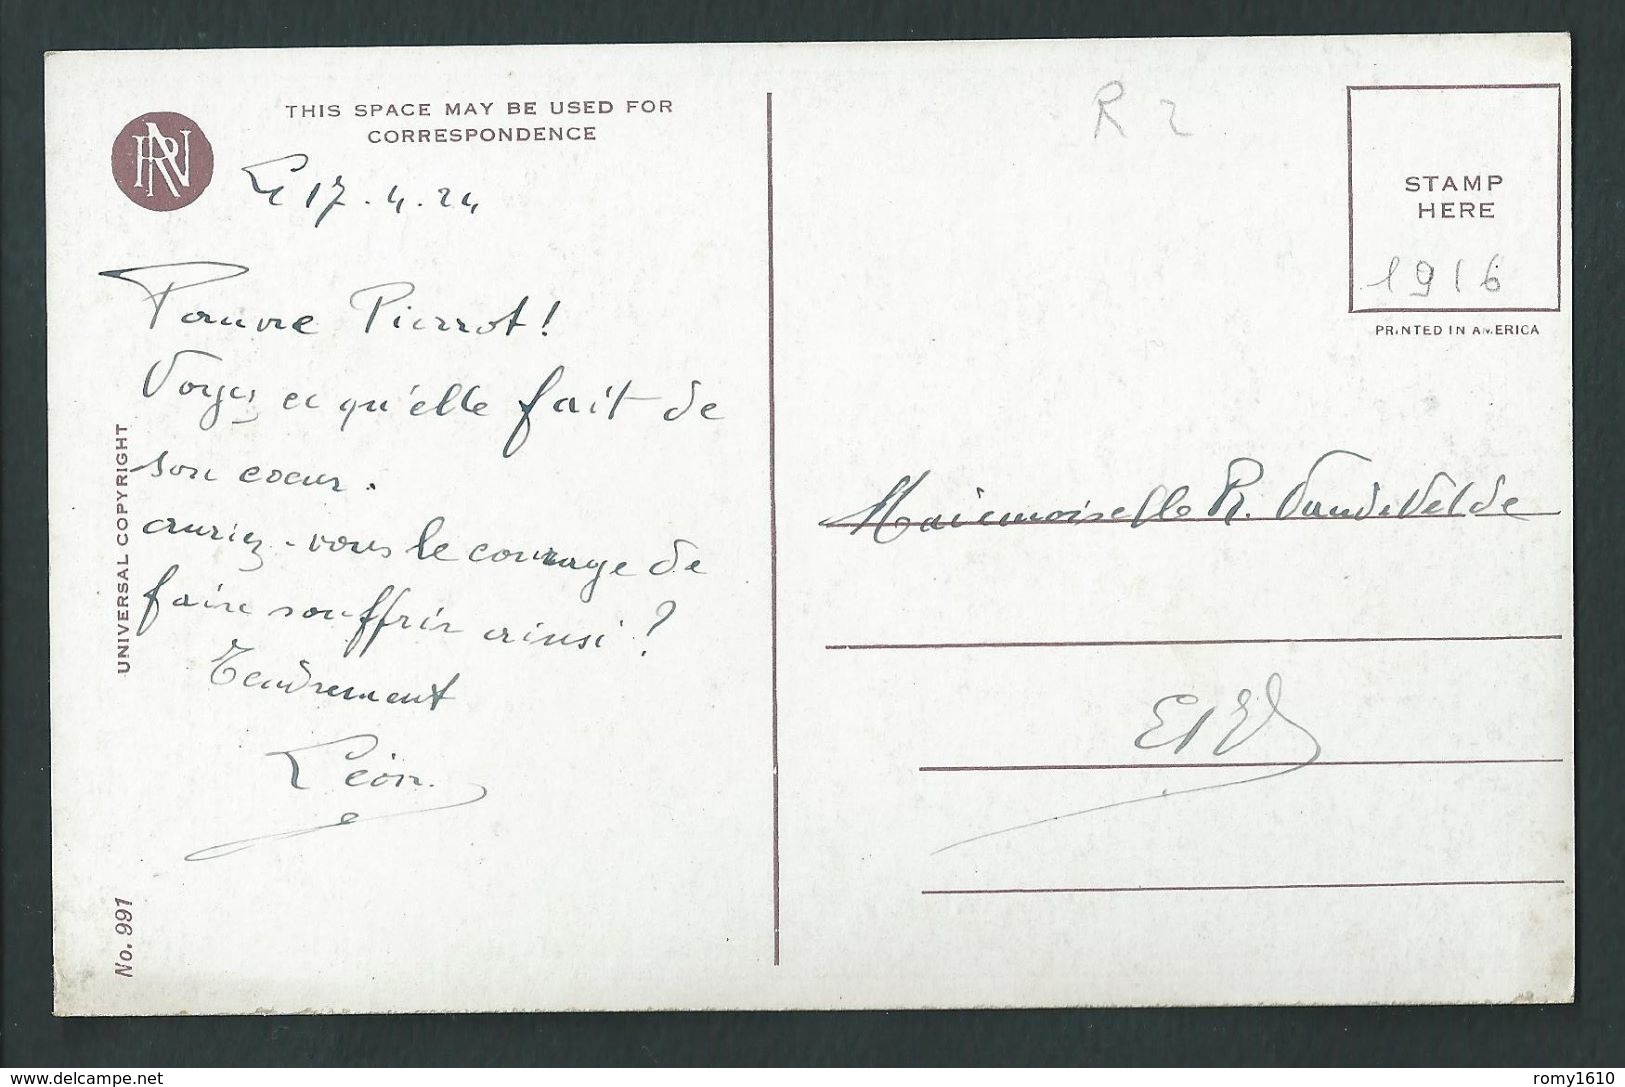 THIS SPACE MAY BE USED FOR
CORRESPONDENCE
Le 17.4.24
Pauvre Pierrot!
Voyez ce qu'elle fait de
son coeur.
auriez-vous le courage de
faire souffrir ainsi?
Tendrement
Léon.
UNIVERSAL COPYRIGHT
No. 991
R 2
STAMP
HERE
1916
PRINTED IN AMERICA
Mademoiselle R. VandeVelde
delcampe.net
romy1610